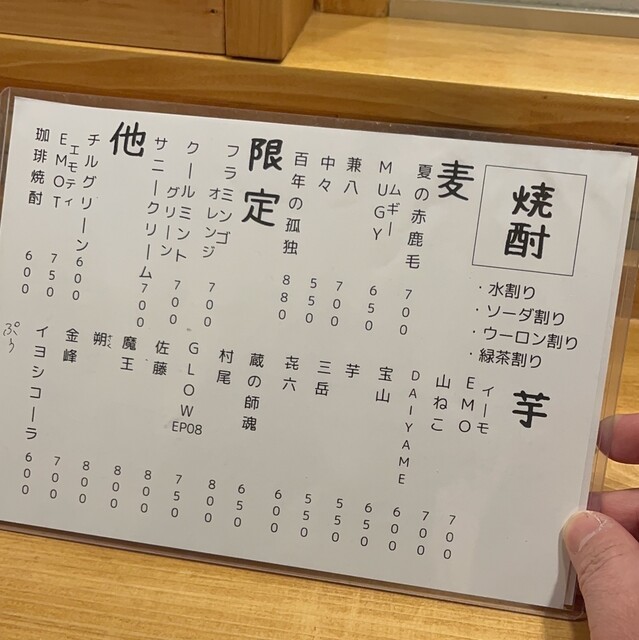 焼酎
・水割り
・ソーダ割り
・ウーロン割り
・緑茶割り
麦
夏の赤鹿毛 700
ムギー
MUGY 650
兼八 700
中々 550
百年の孤独 880
限定
フラミンゴ
オレンジ 700
クールミント
グリーン 700
サニークリーム 700
他
チルグリーン 600
エモティ
EMOT 750
珈琲焼酎 600
芋
ィーモ
EMO 700
山ねこ 700
DAIYAME 600
宝山 650
芋 550
三岳 550
㐂六 600
蔵の師魂 650
村尾 800
GLOW EP08 750
佐藤 800
魔王 800
朔 800
金峰 700
イヨシコーラ 600